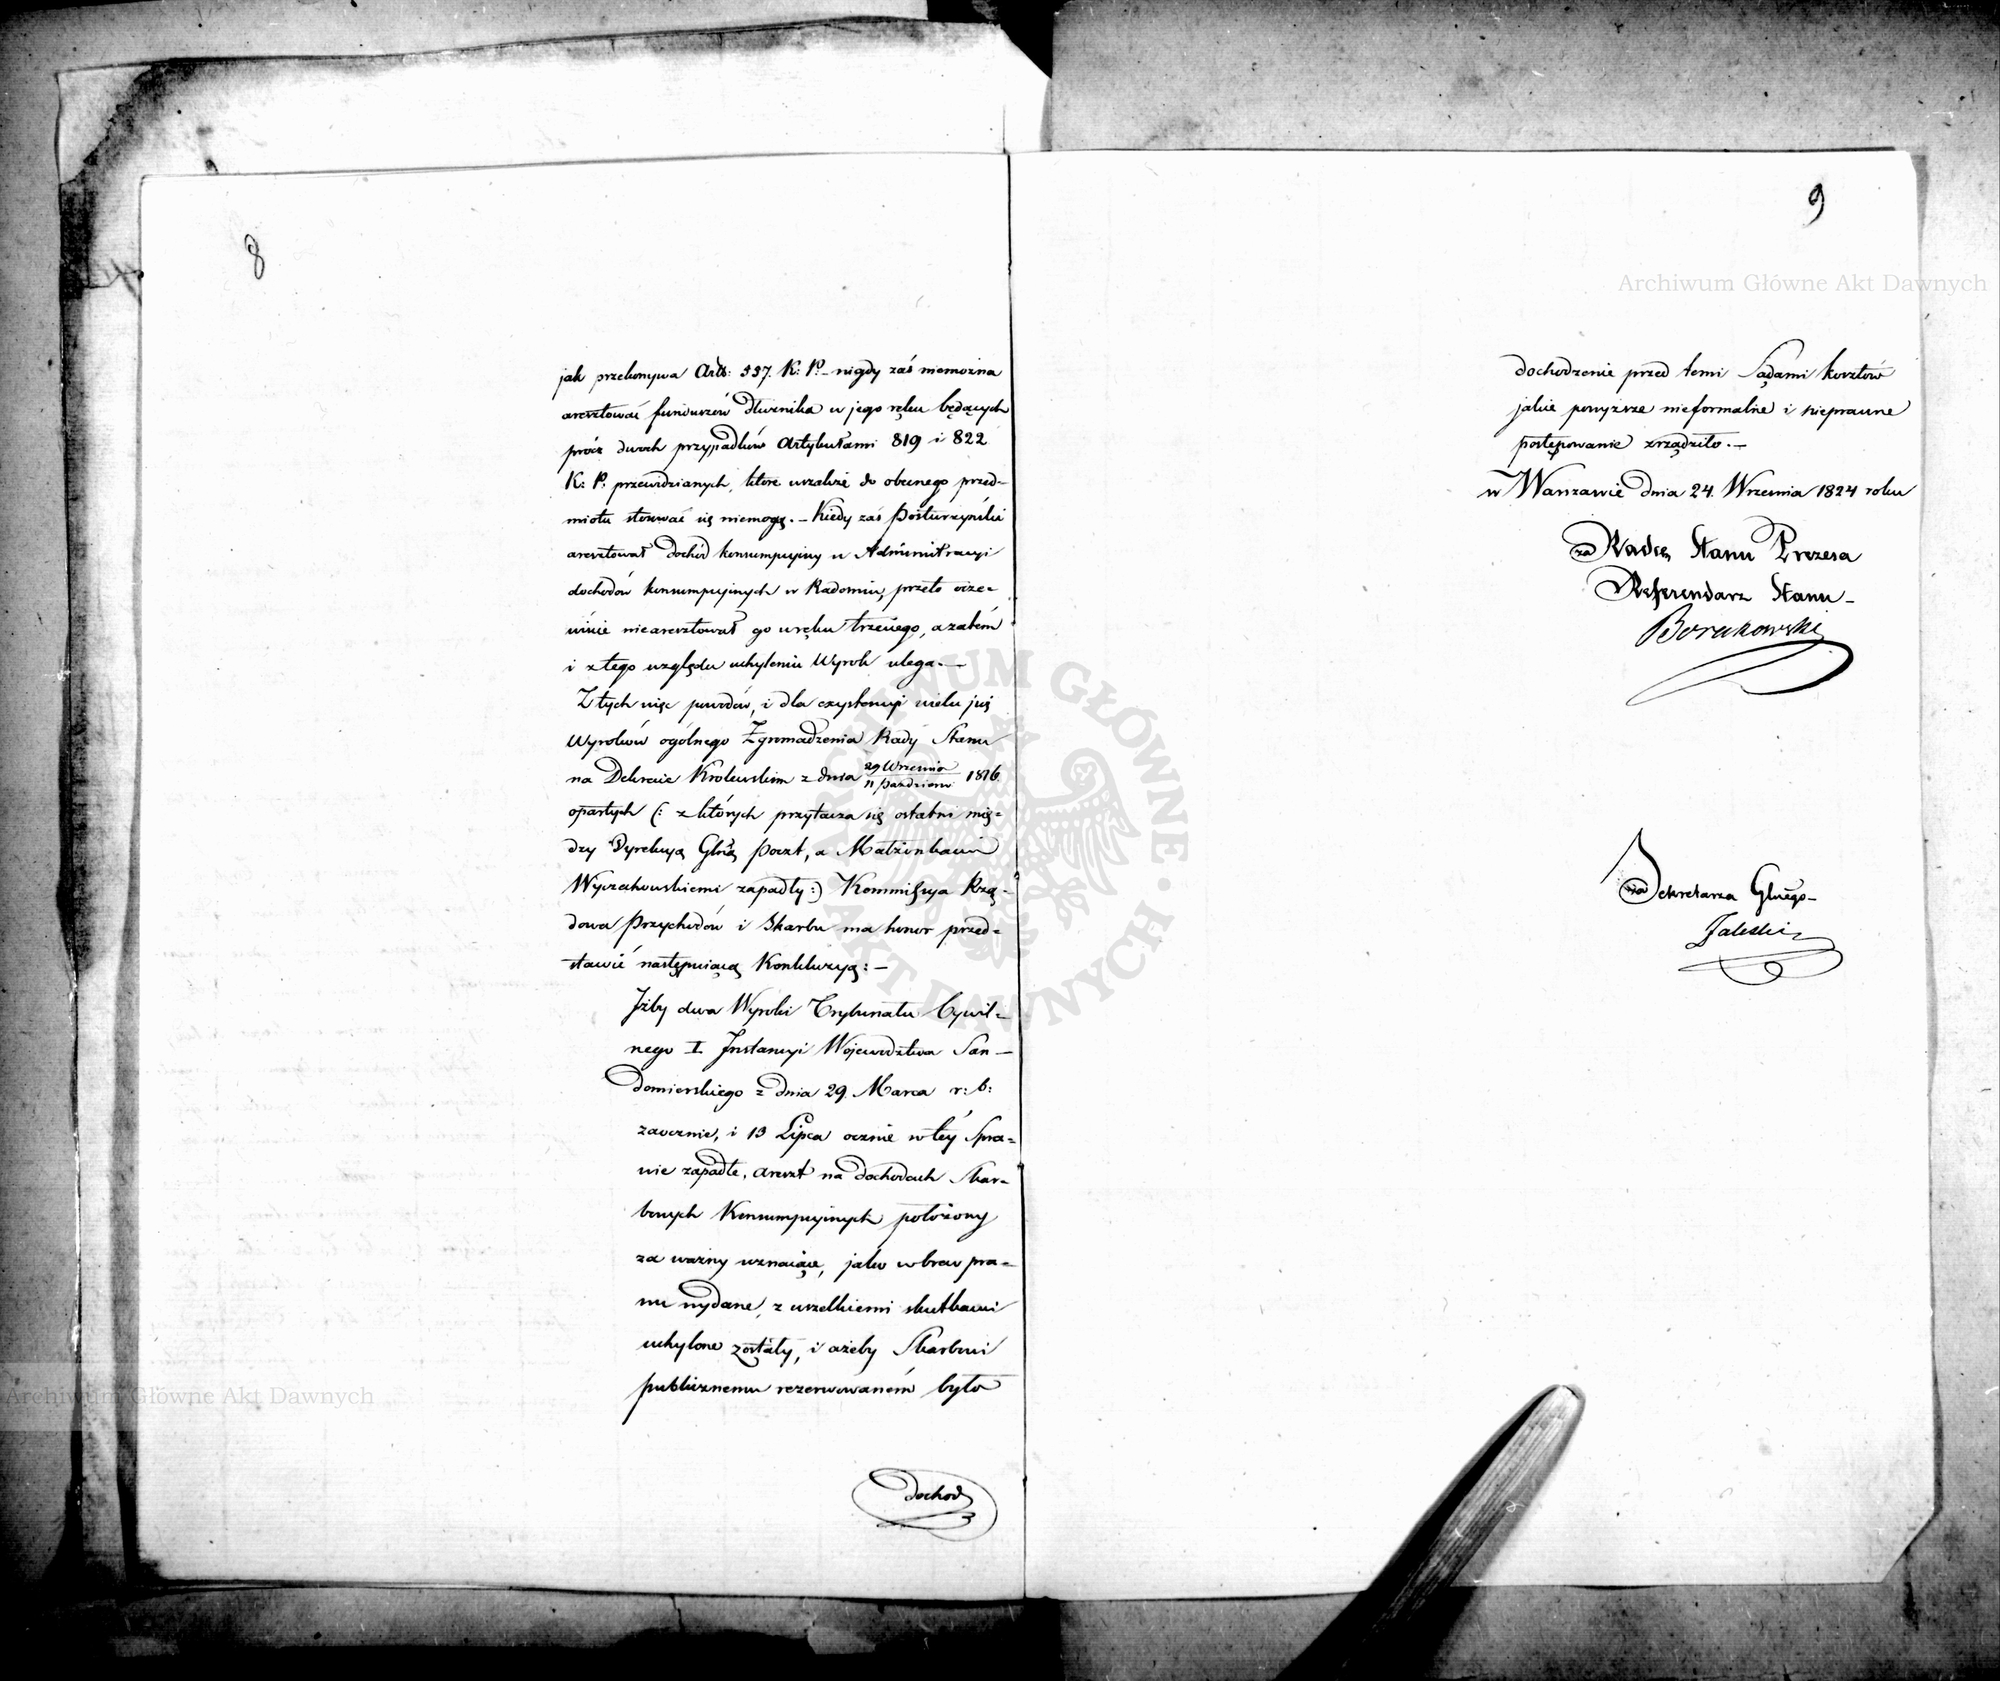 8
jak przekonywa Artł: 557. K: P. – nigdy zaś niemożna
aresztować funduszów dłużnika w jego ręku będących
prócz dwóch przypadków Artykułami 819 i 822
K: P. przewidzianych, które wszakże do obecnego przed=
miotu stosować się niemogą. – Kiedy zaś
aresztował dochód konsumpcyiny w Administracyi
dochodów konsumpcyinych w Radomiu, przeto ocze=
wiście niearesztował go w ręku trzeciego, a zatém
i z tego względu uchyleniu Wyrok ulega. —
Z tych więc powodów, i dla exystencyi wielu już
Wyroków ogólnego Zgromadzenia Rady Stanu
na Dekrecie Królewskim z dnia 29 Września / 11 Paździer: 1816.
opartych (: z których przytacza się ostatni mię=
dzy Dyrekcyą Głną Poczt, a Małżonkami
Wyczechowskiemi zapadły :) Kommissya Rzą=
dowa Przychodów i Skarbu ma honor przed=
stawić następuiącą Konkluzyą: –
Jżby dwa Wyroki Trybunału Cywil=
nego I. Jnstancyi Województwa San –
domierskiego z dnia 29. Marca r: b:
zaocznie, i 13 Lipca ocznie w téy Spra=
wie zapadłe, areszt na dochodach Skar=
bowych Konsumpcyinych położony
za ważny uznaiące, jako wbrew pra=
wu wydane, z wszelkiemi skutkami
uchylone zostały, i ażeby Skarbowi
publicznemu rezerwowaném było
dochod
9
dochodzenie przed temi Sądami kosztów
jakie powyższe nieformalne i nieprawne
postępowanie zrządziło. –
w Warszawie dnia 24. Września 1824 roku
za Radcę Stanu Prezesa
Referendarz Stanu –
za Sekretarza Głnego –
Zaleski
Archiwum Główne Akt Dawnych
Archiwum Główne Akt Dawnych
ARCHIWUM GŁÓWNE AKT DAWNYCH